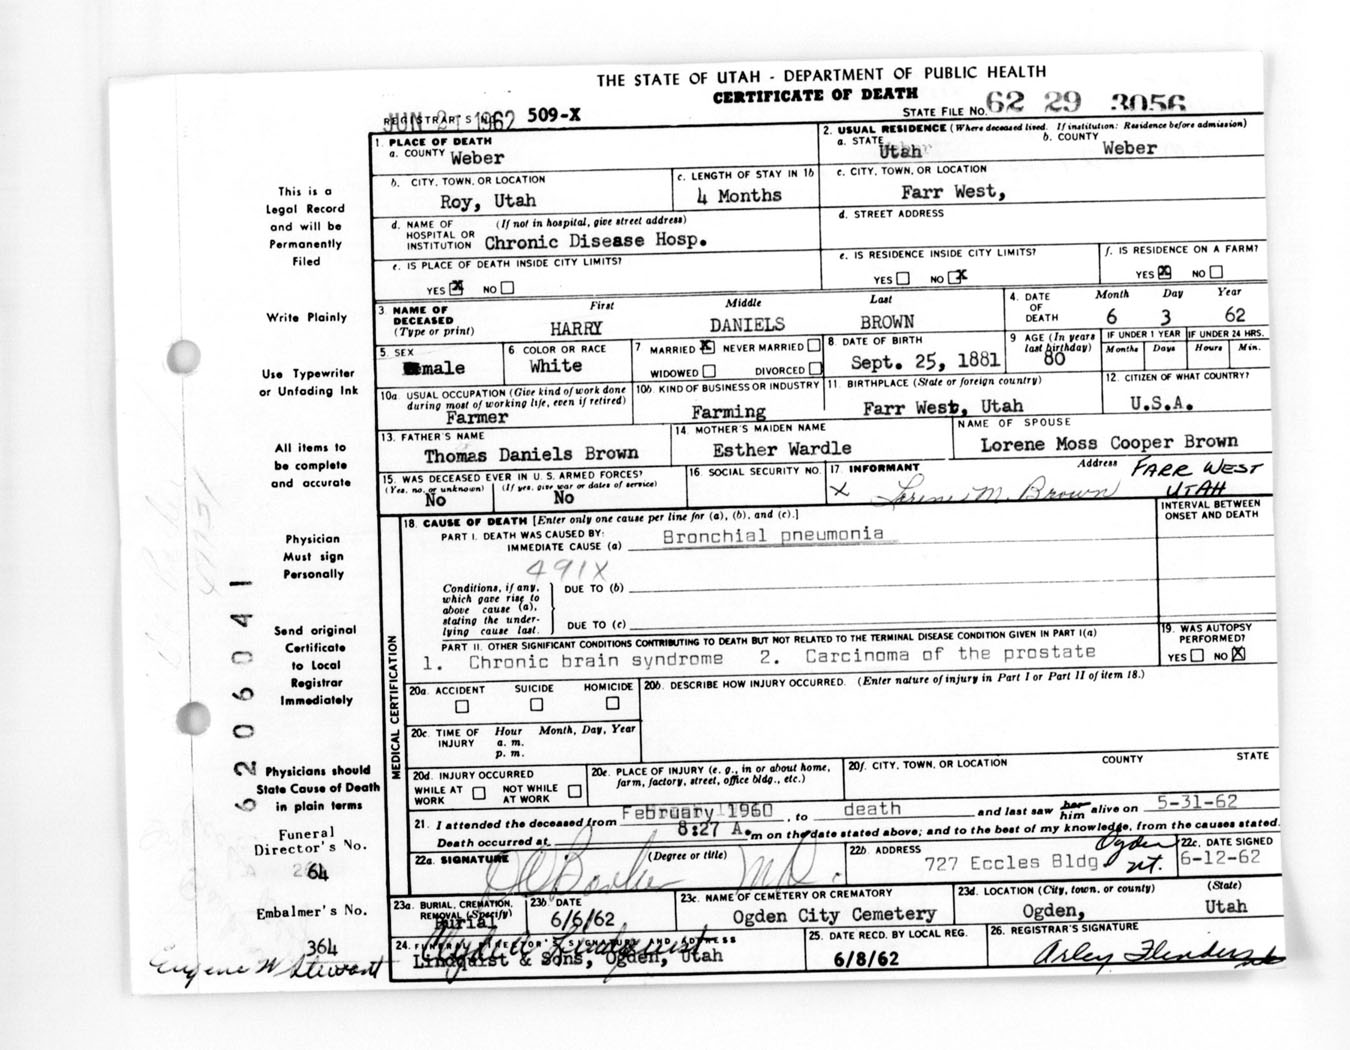 THE STATE OF UTAH - DEPARTMENT OF PUBLIC HEALTH
CERTIFICATE OF DEATH
STATE FILE NO. 62 29 3056
REGISTRAR'S NO. JUN 21 1962 509-X
1. PLACE OF DEATH
a. COUNTY Weber
2. USUAL RESIDENCE (Where deceased lived. If institution: Residence before admission)
a. STATE Utah b. COUNTY Weber
b. CITY, TOWN, OR LOCATION Roy, Utah
c. LENGTH OF STAY IN 1b 4 Months
c. CITY, TOWN, OR LOCATION Farr West,
d. NAME OF HOSPITAL OR INSTITUTION (If not in hospital, give street address) Chronic Disease Hosp.
d. STREET ADDRESS
e. IS PLACE OF DEATH INSIDE CITY LIMITS?
YES X NO
e. IS RESIDENCE INSIDE CITY LIMITS?
YES NO X
f. IS RESIDENCE ON A FARM?
YES X NO
3. NAME OF DECEASED (Type or print)
First Middle Last
HARRY DANIELS BROWN
4. DATE OF DEATH Month Day Year
6 3 62
5. SEX male
6 COLOR OR RACE White
7 MARRIED X NEVER MARRIED
WIDOWED DIVORCED
8 DATE OF BIRTH Sept. 25, 1881
9 AGE (In years last birthday) 80
IF UNDER 1 YEAR Months Days
IF UNDER 24 HRS. Hours Min.
10a USUAL OCCUPATION (Give kind of work done during most of working life, even if retired) Farmer
10b. KIND OF BUSINESS OR INDUSTRY Farming
11. BIRTHPLACE (State or foreign country) Farr West, Utah
12. CITIZEN OF WHAT COUNTRY? U.S.A.
13. FATHER'S NAME Thomas Daniels Brown
14. MOTHER'S MAIDEN NAME Esther Wardle
NAME OF SPOUSE Lorene Moss Cooper Brown
15. WAS DECEASED EVER IN U.S. ARMED FORCES?
(Yes, no, or unknown) No (If yes, give war or dates of service) No
16. SOCIAL SECURITY NO.
17. INFORMANT Address
X Lorene M. Brown FARR WEST UTAH
18. CAUSE OF DEATH [Enter only one cause per line for (a), (b), and (c).]
INTERVAL BETWEEN ONSET AND DEATH
PART I. DEATH WAS CAUSED BY:
IMMEDIATE CAUSE (a) Bronchial pneumonia
491X
Conditions, if any, which gave rise to above cause (a), stating the underlying cause last.
DUE TO (b)
DUE TO (c)
PART II. OTHER SIGNIFICANT CONDITIONS CONTRIBUTING TO DEATH BUT NOT RELATED TO THE TERMINAL DISEASE CONDITION GIVEN IN PART I(a)
1. Chronic brain syndrome 2. Carcinoma of the prostate
19. WAS AUTOPSY PERFORMED?
YES NO X
MEDICAL CERTIFICATION
20a. ACCIDENT SUICIDE HOMICIDE
20b. DESCRIBE HOW INJURY OCCURRED. (Enter nature of injury in Part I or Part II of item 18.)
20c. TIME OF INJURY Hour Month, Day, Year
a. m.
p. m.
20d. INJURY OCCURRED
WHILE AT WORK NOT WHILE AT WORK
20e. PLACE OF INJURY (e. g., in or about home, farm, factory, street, office bldg., etc.)
20f. CITY, TOWN, OR LOCATION COUNTY STATE
21. I attended the deceased from February 1960, to death and last saw her him alive on 5-31-62
Death occurred at 8:27 A. m on the date stated above; and to the best of my knowledge, from the causes stated.
22a. SIGNATURE (Degree or title) M.D.
22b. ADDRESS 727 Eccles Bldg Ogden Ut.
22c. DATE SIGNED 6-12-62
23a. BURIAL, CREMATION, REMOVAL (Specify) Burial
23b. DATE 6/6/62
23c. NAME OF CEMETERY OR CREMATORY Ogden City Cemetery
23d. LOCATION (City, town, or county) (State)
Ogden, Utah
24. FUNERAL DIRECTOR'S SIGNATURE AND ADDRESS
Lindquist & Sons, Ogden, Utah
25. DATE RECD. BY LOCAL REG. 6/8/62
26. REGISTRAR'S SIGNATURE
Arley Flinders
This is a
Legal Record
and will be
Permanently
Filed
Write Plainly
Use Typewriter
or Unfading Ink
All items to
be complete
and accurate
Physician
Must sign
Personally
Send original
Certificate
to Local
Registrar
Immediately
Physicians should
State Cause of Death
in plain terms
Funeral
Director's No.
64
Embalmer's No.
364
Eugene W Stewart
62 06041